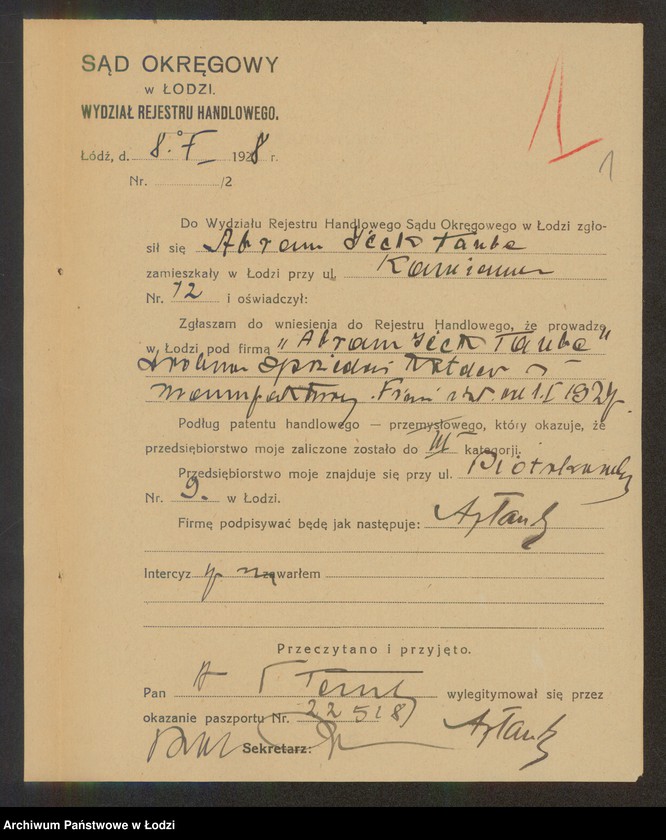 SĄD OKRĘGOWY
w ŁODZI.
WYDZIAŁ REJESTRU HANDLOWEGO.
Łódź, d. 8. 1928 r.
Nr. /2
1
1
Do Wydziału Rejestru Handlowego Sądu Okręgowego w Łodzi zgło-
sił się Abram Icek Taube
zamieszkały w Łodzi przy ul. Kamienna
Nr. 12 i oświadczył:
Zgłaszam do wniesienia do Rejestru Handlowego, że prowadzę
w Łodzi pod firmą „Abram Icek Taube"
drobna sprzedaż
manufaktury. od 1.I 192
Podług patentu handlowego — przemysłowego, który okazuje, że
przedsiębiorstwo moje zaliczone zostało do III kategorji.
Przedsiębiorstwo moje znajduje się przy ul. Piotrkowsk
Nr. 9. w Łodzi.
Firmę podpisywać będę jak następuje: ATaub
Intercyz y n zawarłem
Przeczytano i przyjęto.
Pan A T wylegitymował się przez
okazanie paszportu Nr. 22518
ATaub
Sekretarz:
Archiwum Państwowe w Łodzi